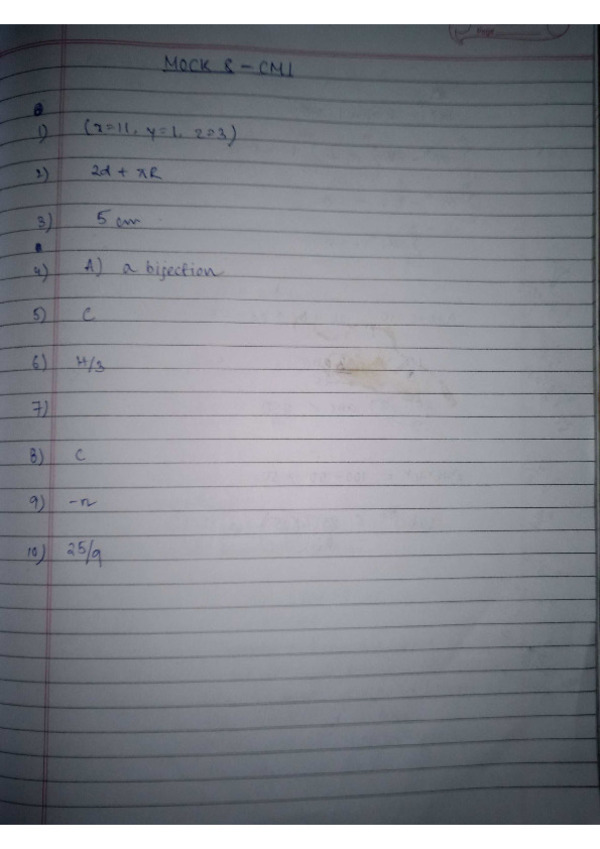 MOCK 8 - CMI
1) (x=11, y=1, z=3)
2) 2d + πR
3) 5 cm
4) A) a bijection
5) C
6) H/3
7)
8) C
9) -n
10) 25/9